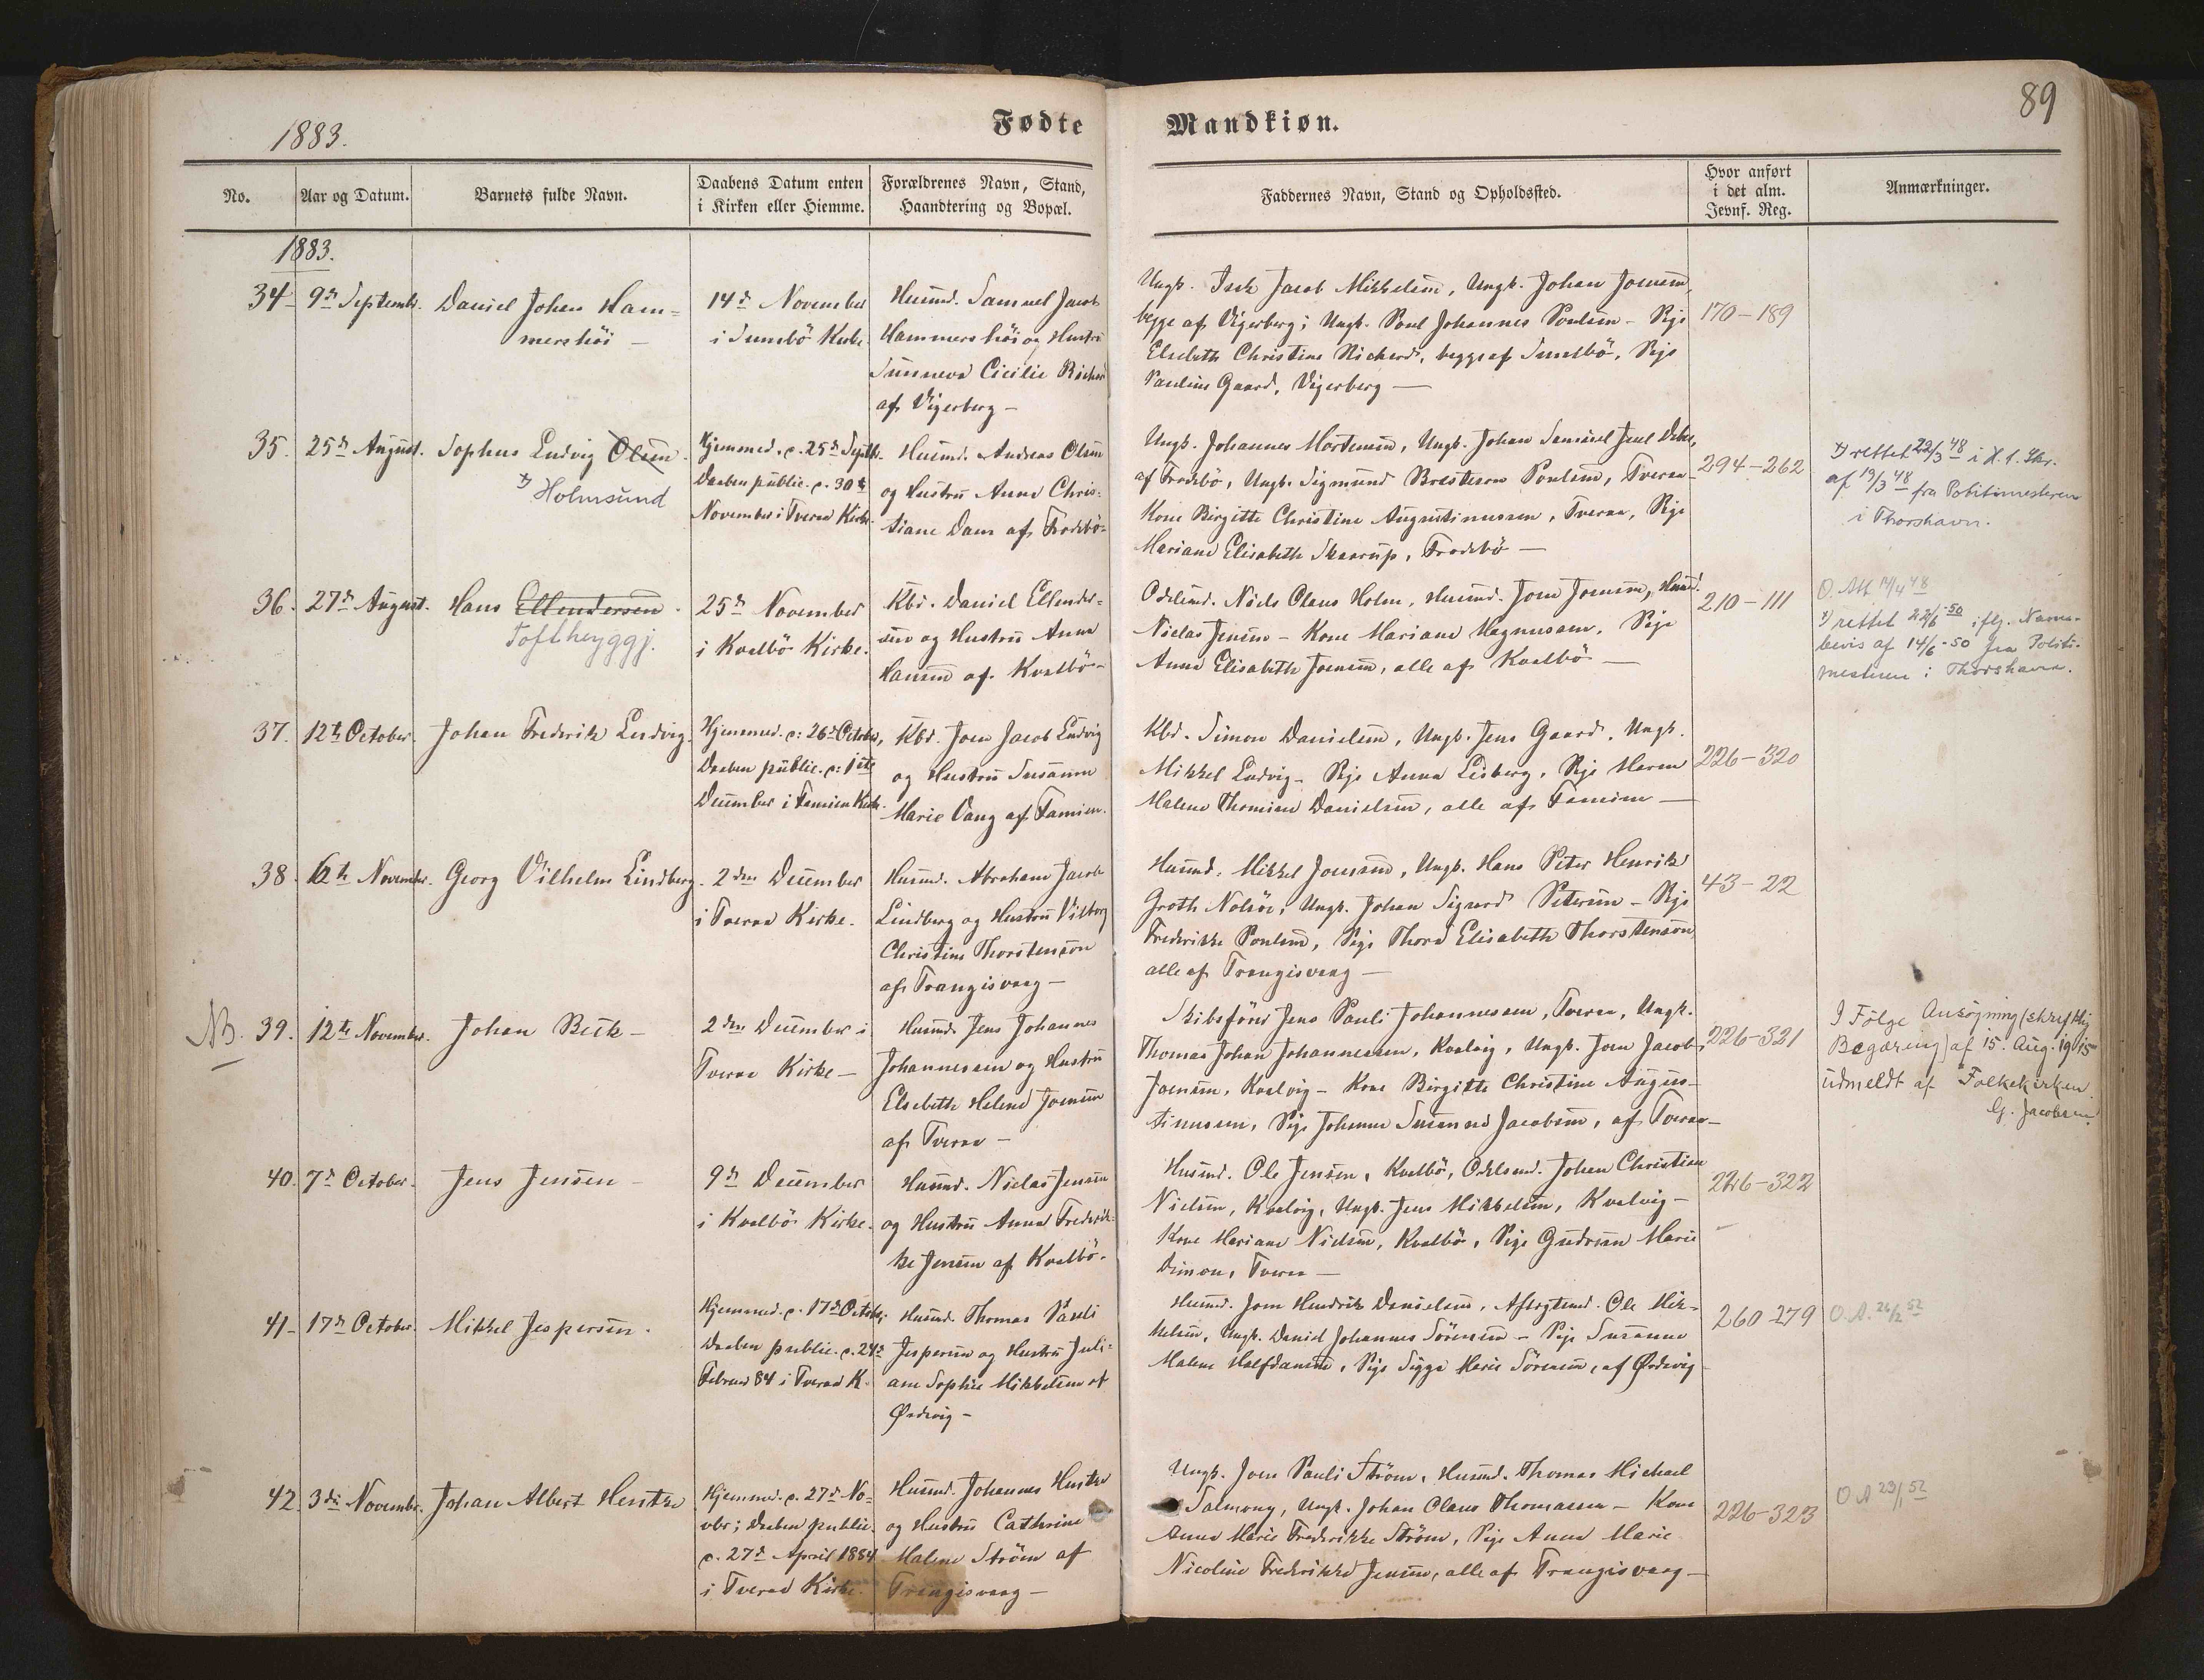 89
1883.
Fødte
Mandkiøn.
No.
Aar og Datum.
Barnets fulde Navn.
Daabens Datum enten
i Kirken eller Hiemme.
Forældrenes Navn, Stand,
Haandtering og Bopæl.
Faddernes Navn, Stand og Opholdssted.
Hvor anført
i det alm.
Jevnf. Reg.
Anmærkninger.
1883.
34
9de Septembr.
Daniel Johan Ham=
mershöi
14de November
i Sumbö Kirke
Husmd. Samuel Jacob
Hammershöi og Hustru
Sunneva Cicilie
af Vigerberg
Ungk. Isak Jacob Mikkelsen, Ungk. Johan Joensen,
begge af Vigerberg; Ungk. Poul Johannes Poulsen - Pige
Elsebeth Christine Richard, begge af Sumbö, Pige
Pauline Gaard, Vigerberg
170-189
35.
25de August.
Sophus Ludvig Olsen
Holmsund
Hjemmed. c. 25de Septbr.
Daaben public. c. 30te
November i Tveraa Kirke.
Husmd. Andreas Olsen
og Hustru Anna Chris=
tiane Dam af Frodebö
Ungk. Johannes Mortensen, Ungk. Johan Samuel Juul
af Frodebö, Ungk. Sigmund Poulsen, Tveraa
Kone Birgitte Christine Augustinussen, Tveraa, Pige
Mariane Elisabeth Skaarup, Frodebö
294-262
rettet 22/3 48 i H. t. Skr.
af 19/3 48 fra Politimesteren
i Thorshavn.
36.
27de August.
Hans Ellendersen
Toftheyggj.
25de November
i Kvalbö Kirke.
Kbd. Daniel Ellender=
sen og Hustru Anna
Hansen af Kvalbö
Odelsmd. Niels Claus Holm, Husmd. Joen Joensen, Husmd.
Niclas Jensen - Kone Mariane Magnussen, Pige
Anna Elisabeth Joensen, alle af Kvalbö
210-111
O. Att 14/4 48
rettet 22/6 -50 iflg. Navne-
bevis af 14/6 -50 fra Politi-
mesteren i Thorshavn.
37.
12te October.
Johan Frederik Ludvig.
Hjemmed. c. 26de October,
Daaben public. c. 1ste
December i Famien Kirke.
Kbd. Joen Jacob Ludvig
og Hustru Susanna
Marie Vang af Famien.
Kbd. Simon Danielsen, Ungk. Jens Gaard, Ungk.
Mikkel Ludvig - Pige Anna Lisberg, Pige Maren
Malene Thomine Danielsen, alle af Famien
226-320
38.
12te November.
Georg Vilhelm Lindberg.
2den December
i Tveraa Kirke.
Husmd. Abraham Jacob
Lindberg og Hustru
Christine Thorstenson
af Trangisvaag
Husmd. Mikkel Joensen, Ungk. Hans Peter Henrik
Groth Nolsöe, Ungk. Johan Sigurd Petersen - Pige
Frederikke Poulsen, Pige Thora Elisabeth Thorstenson
alle af Trangisvaag
43-22
NB.
39.
12te November.
Johan Beck
2den December i
Tveraa Kirke
Husmd. Jens Johannes
Johannessen og Hustru
Elsebeth Helene Joensen
af Tveraa
Skibsförer Jens Pauli Johannessen, Tveraa, Ungk.
Thomas Johan Johannessen, Kvalvig, Ungk. Joen Jacob
Joensen, Kvalvig - Kone Birgitte Christine Augus-
tinussen, Pige Johanne Susanna Jacobsen, af Tveraa
226-321
I Følge Ansøgning (skriftlig
Begæring) af 15. Aug. 1915
udmeldt af Folkekirken.
G. Jacobsen
40.
7de October.
Jens Jensen
9de December
i Kvalbö Kirke.
Husmd. Niclas Jensen
og Hustru Anna Frederik=
ke Jensen af Kvalbö.
Husmd. Ole Jensen, Kvalbö, Odelsmd. Johan Christian
Nielsen, Kvalvig, Ungk. Jens Mikkelsen, Kvalvig
Kone Mariane Nielsen, Kvalbö, Pige Gudrun Marie
Dimon, Tveraa
226-322
41
17de October.
Mikkel Jespersen.
Hjemmed. c. 17de October,
Daaben public. c. 24de
Februar 84 i Tveraa K.
Husmd. Thomas Pauli
Jespersen og Hustru Juli=
ane Sophie Mikkelsen af
Ørdevig
Husmd. Joen Hendrik Danielsen, Aftægtsmd. Ole Mik=
kelsen, Ungk. Daniel Johannes Sörensen - Pige Susanne
Malene Halfdansen, Pige Sigga Marie Sörensen, af Ørdevig
260-279
O.A. 26/2 52
42.
3die Novembr.
Johan Albert Hentze
Hjemmed. c. 27de No=
vbr; Daaben public.
c. 27de April 1884
i Tveraa Kirke.
Husmd. Johannes Hentze
og Hustru Cathrine
Malene Ström af
Trangisvaag
Ungk. Joen Pauli Ström, Husmd. Thomas Michael
Salmony, Ungk. Johan Claus Thomassen - Kone
Anne Marie Frederikke Ström, Pige Anna Marie
Nicoline Frederikke Jensen, alle af Trangisvaag
226-323
O A 23/1 52